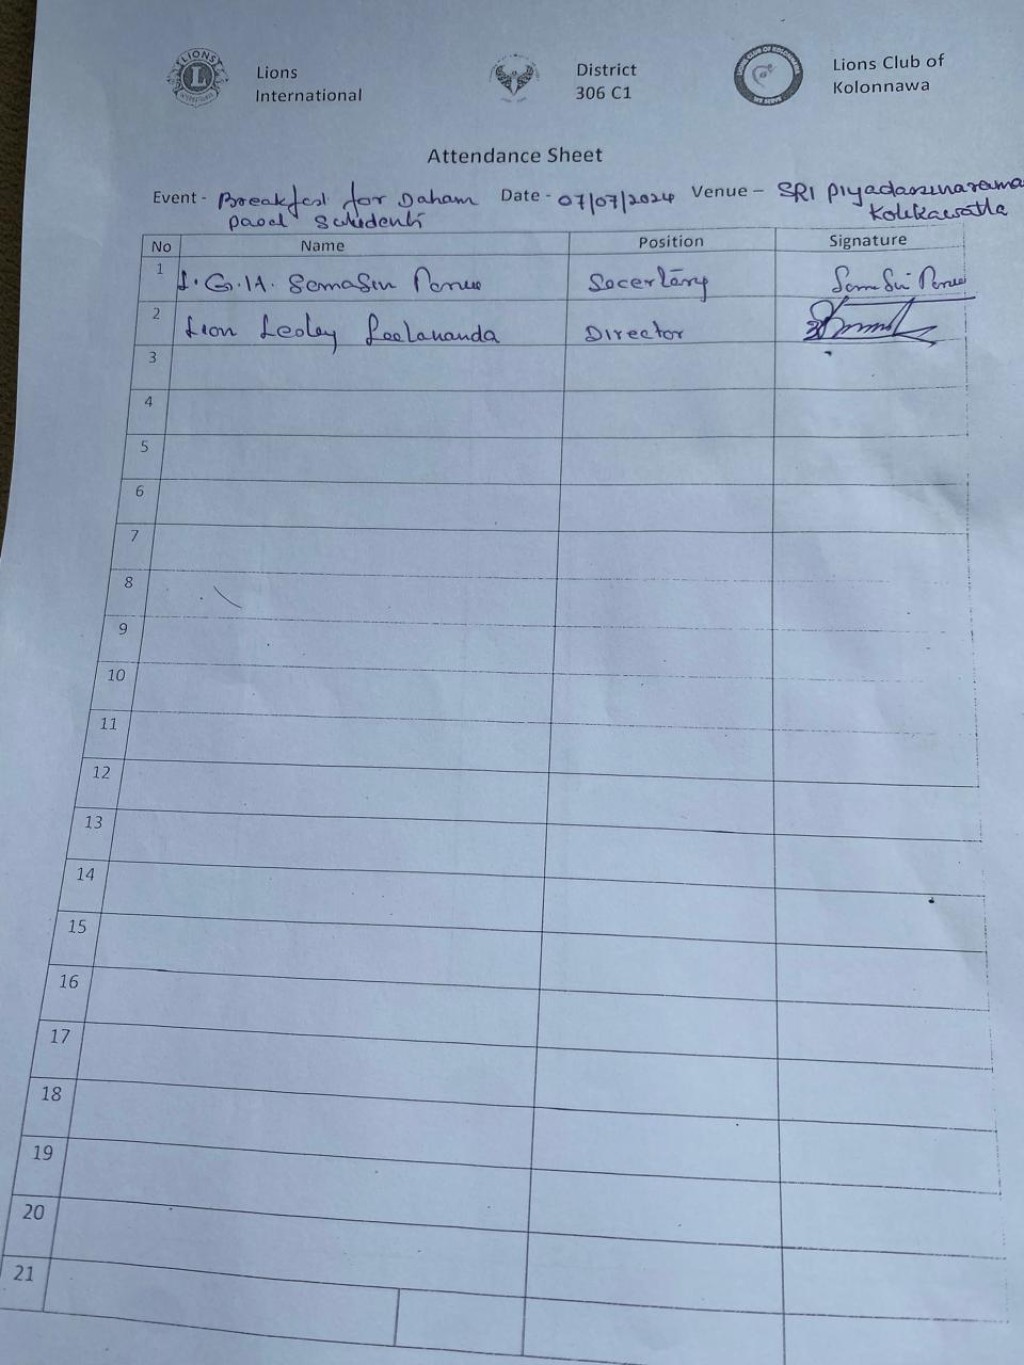 LIONS
L
INTERNATIONAL
Lions
International
District
306 C1
LIONS CLUB OF KOLONNAWA
WE SERVE
Lions Club of
Kolonnawa
Attendance Sheet
Event - Breakfast for Daham Date - 07/07/2024 Venue - SRI Piyadassanarama
Students
No Name Position Signature
1 G.H. Somasiri Socertary Somasiri
2 Lion Lesley Leelananda Director
3
4
5
6
7
8
9
10
11
12
13
14
15
16
17
18
19
20
21